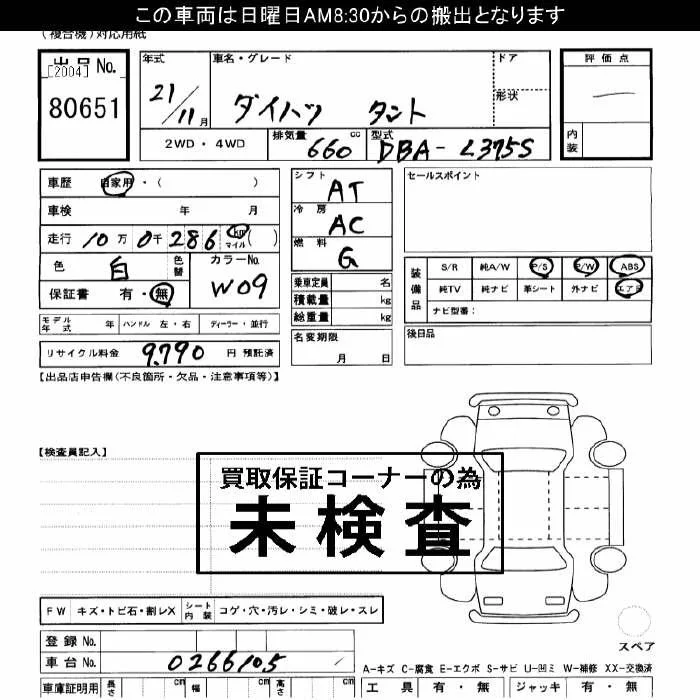 この車両は日曜日AM8:30からの搬出となります
(複合機)対応用紙
出品 No.
[2004]
80651
年式
21/11月
車名・グレード
ダイハツ タント
ドア
形状
2WD・4WD
排気量
660 cc
型式
DBA-L375S
評価点
内装
車歴 自家用・( )
車検 年 月
走行 10万 0千 286 km マイル ( )
色 白
色替
カラーNo.
W09
保証書 有・無
シフト
AT
冷房
AC
燃料
G
乗車定員 名
積載量 kg
総重量 kg
セールスポイント
装備品
S/R 純A/W P/S P/W ABS
純TV 純ナビ 革シート 外ナビ エアB
ナビ型番:
モデル年式 年 ハンドル 左・右 ディーラー・並行
リサイクル料金 9,790 円 預託済
名変期限
月 日
後日品
【出品店申告欄(不良箇所・欠品・注意事項等)】
【検査員記入】
買取保証コーナーの為
未検査
FW キズ・トビ石・割レX シート内装 コゲ・穴・汚レ・シミ・破レ・スレ
スペア
登録 No.
車台 No. 0266105
A-キズ C-腐食 E-エクボ S-サビ U-凹ミ W-補修 XX-交換済
車庫証明用 長さ cm 幅 cm 高さ cm
工具 有・無 ジャッキ 有・無